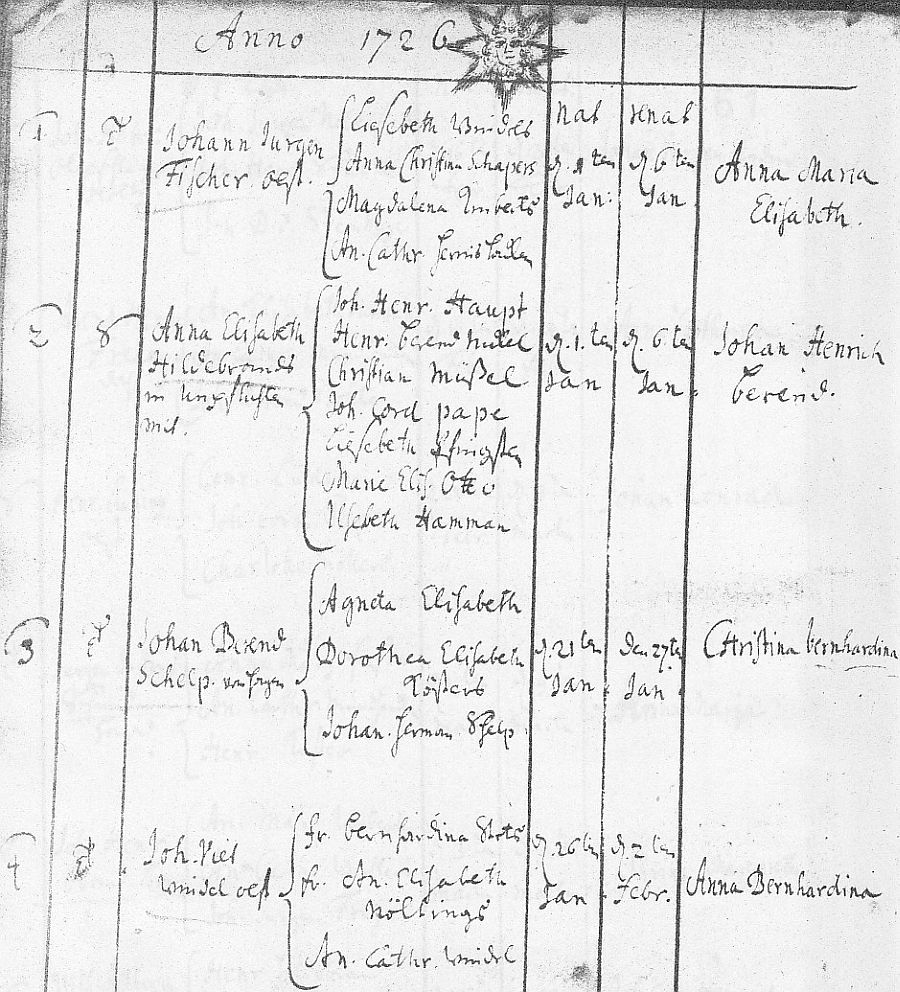 Anno 1726
1
Johann Jurgen
Fischer oest.
Liesebeth Windels
Anna Christina Schapers
Magdalena
An. Cathr.
Nat
d. 1ten
Jan:
renat
d. 6ten
Jan
Anna Maria
Elisabeth.
2
Anna Elisabeth
Hildebrands
in
Joh. Henr. Haupt
Henr. berend
Christian Müßel
Joh. Cord pape
Liesebeth Pfingsten
Marie Elis. Otto
Ilsebeth Hamman
d. 1. ten
Jan
d. 6. ten
Jan.
Johan Henrich
berend.
3
Johan Berend
Schelp.
Agneta Elisabeth
Dorothea Elisabeth
Johan. Herman Schelp
d. 21 ten
Jan.
den 27 ten
Jan.
Christina bernhardina
4
Joh. Viet
Windel oest
fr. bernhardina
fr. An. Elisabeth
Nöltings
An. Cathr. Windel
d. 26 ten
Jan.
d. 2 ten
Febr.
Anna Bernhardina